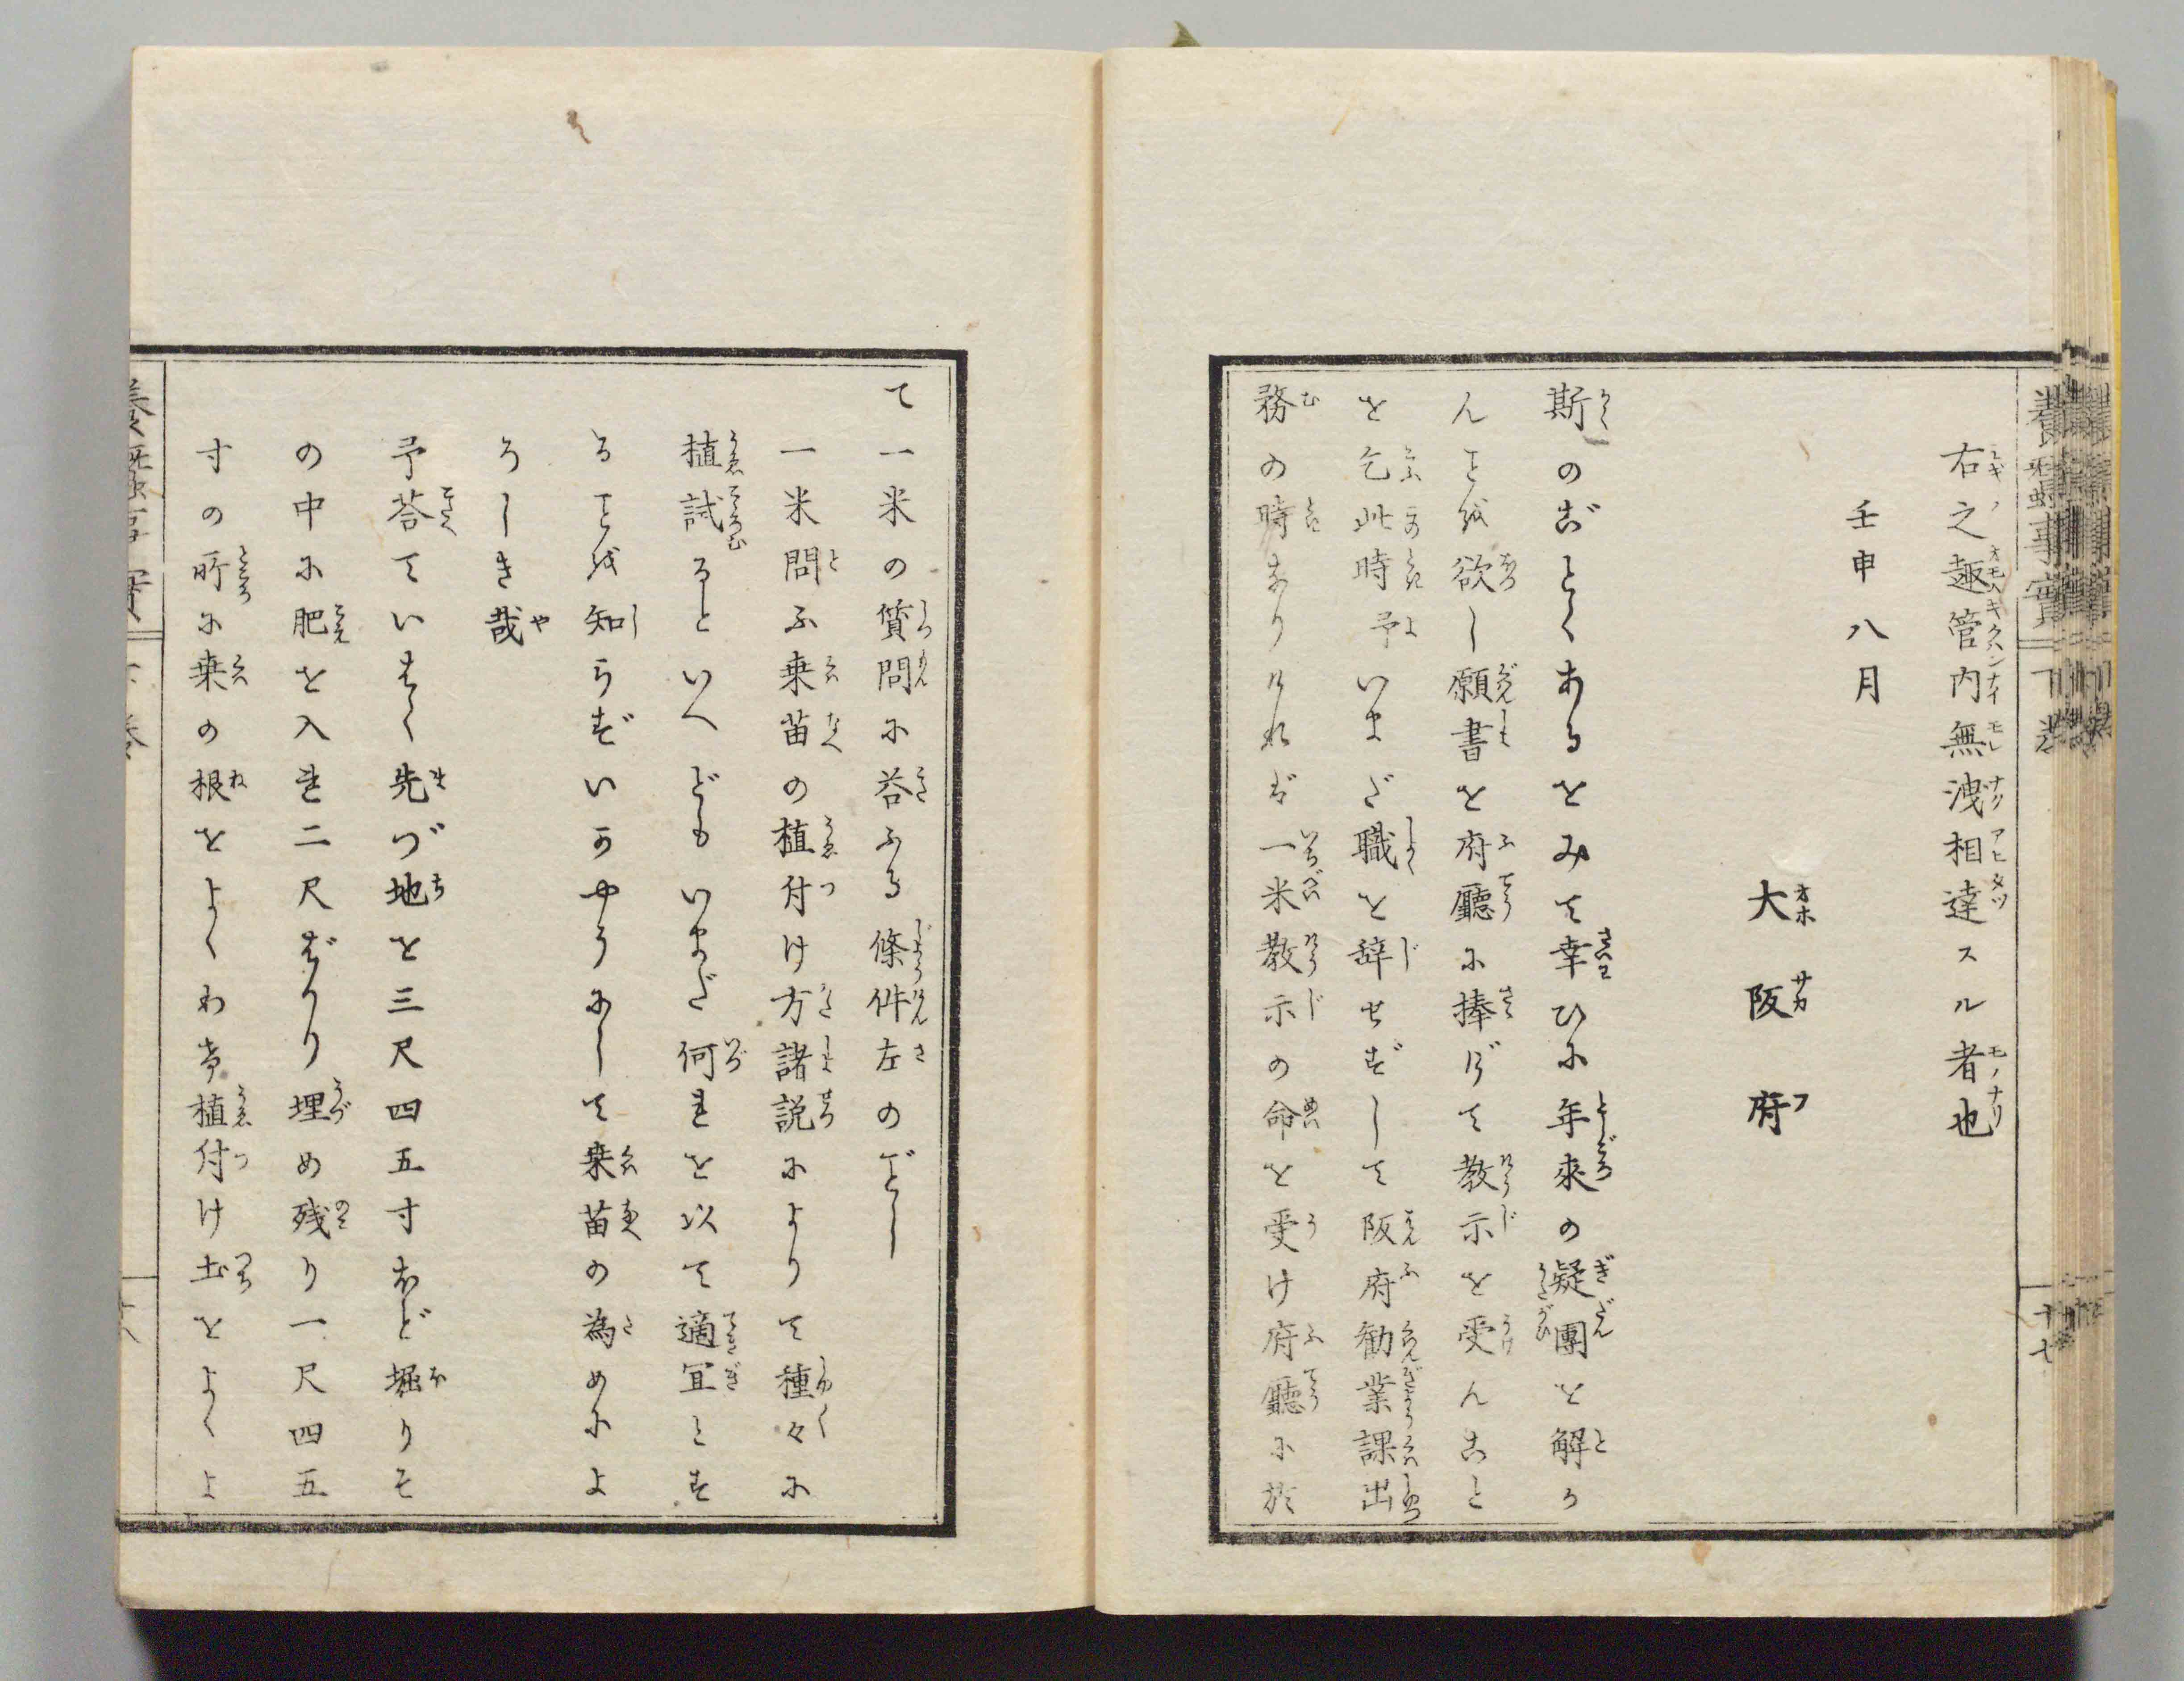 右之趣管内無洩相達スル者也
壬申八月
大阪府
斯のごとくあるをみて幸ひに年來の凝團を解か
んことを欲し願書を府廳に捧げて教示を受んこと
を乞此時予いまだ職を辞せずして阪府勧業課出
務の時なりければ一米教示の命を受け府廳に於
て一米の質問に答ふる條件左のごとし
一米問ふ桒苗の植付け方諸説によりて種々に
植試るといへどもいまだ何れを以て適冝とす
ることを知らずいかやうにして桒苗の為めによ
ろしき哉
予荅ていはく先づ地を三尺四五寸ほど堀りそ
の中に肥を入れ二尺ばかり埋め残り一尺四五
寸の所に桒の根をよくわけ植付け土をよくよ
養蚕事實
下巻
十七